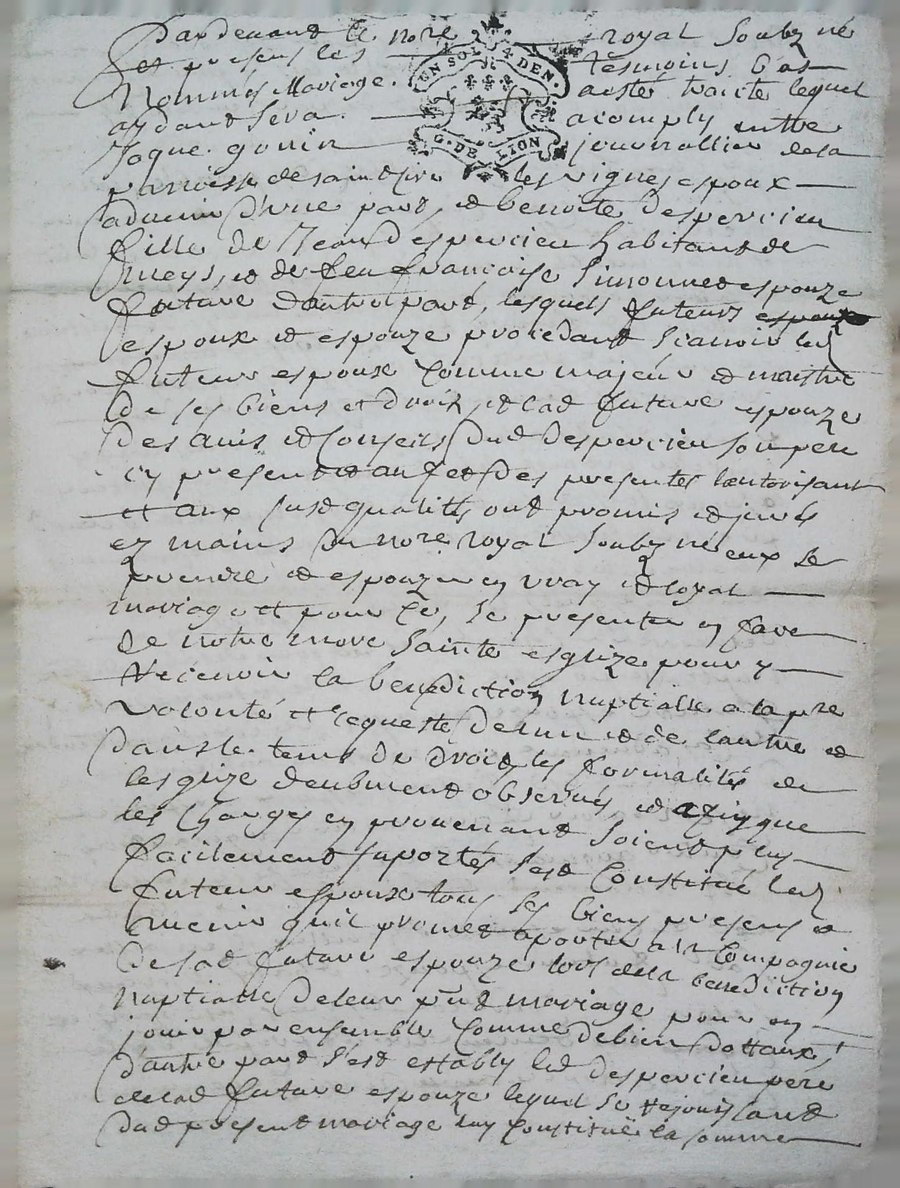 Pardevant le no.re royal soubz.né
et presens les tesmoins bas
Nommés Mariage a esté traicté lequel
aydant sera acomply entre
Jaque gonin journallier de la
parroisse de saint les vignes espoux
advenir d'une part, et benoite despercieu
fille de Jean despercieu habitant de
meys, et de feu françoise simonnet espouze
future d'autre part, lesquels futurs
espoux et espouze procedant scavoir led
futeur espoux comme majeur et maistre
de ses biens et droix, et lad future espouze
des avis et conseils dud despercieu son pere
cy present et au fet des presentes l'autorisant
et aux susd qualittés ont promis et jurés
ez mains du no.re royal soubz.né eux se
prendre et espouzer en vray et loyal
mariage et pour ce, se presenter en face
de notre mere sainte esglize pour y
recevoir la benediction nuptialle a la p.re
volonté et requeste de lun et de lautre et
dans le tems de droit, les formalités de
lesglize deubment observés, et afin que
les charges en provenant soient plus
facilement suportés sest constitué led
futeur espoux tous ses biens presens et
advenir quil promet aporter a la compagnie
de sad future espouze lors de la benediction
nuptialle de leur p.nt mariage pour en
jouir par ensemble comme de bien dottaux,
d'autre part s'est estably led despercieu pere
de lad future espouze lequel se rejouissant
dud present mariage luy constitue la somme
EN SOL 4 DEN.
G. DE LION